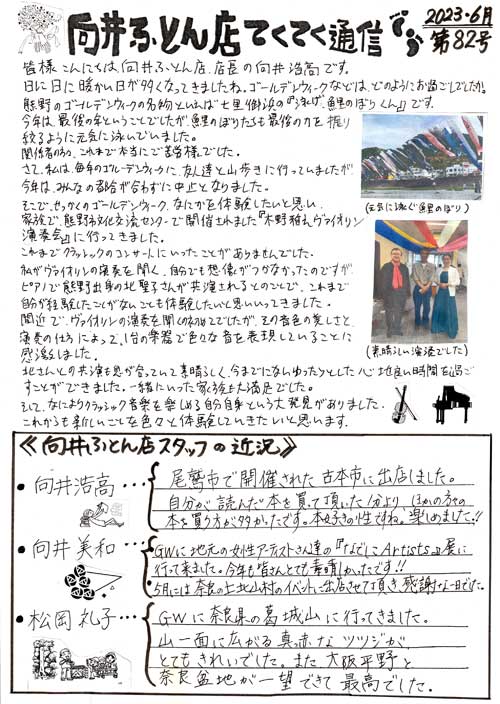 向井ふとん店てくてく通信
2023・6月
第82号
皆様こんにちは、向井ふとん店、店長の向井浩高です。
日に日に暖かい日が多くなってきましたね。ゴールデンウィークなどは、どのようにお過ごしでしたか。
熊野のゴールデンウィークの名物といえば七里御浜の『泳げ、鯉のぼりくん』です。
今年は、最後の年ということでしたが、鯉のぼりたちも最後の力を振り
絞るように元気に泳いでいました。
関係者の方、これまで本当にご苦労様でした。
さて、私は、毎年のゴールデンウィークに、友達と山歩きに行っていましたが、
今年は、みんなの都合が合わずに中止となりました。
そこで、せっかくのゴールデンウィーク、なにかを体験したいと思い、
家族で、熊野市文化交流センターで開催されました『木野雅之ヴァイオリン
演奏会』に行ってきました。
これまでクラシックのコンサートにいったことがありませんでした。
私がヴァイオリンの演奏を聞く、自分でも想像がつかなかったのですが、
ピアノで熊野出身の北聖子さんが共演されるとのことで、これまで
自分が経験したことがないことも体験したいと思いいってきました。
間近で、ヴァイオリンの演奏を聞くのは初めてでしたが、その音色の美しさと、
演奏の仕方によって、1台の楽器で色々な音を表現していることに
感激しました。
北さんとの共演も息が合っていて素晴らしく、今までにないゆったりとした心地良い時間を過ご
すことができました。一緒にいった家族も大満足でした。
そして、なによりクラシック音楽を楽しめる自分自身という大発見がありました。
これからも新しいことを色々と体験していきたいと思います。
(元気に泳ぐ鯉のぼり)
(素晴らしい演奏でした)
≪向井ふとん店スタッフの近況≫
・向井浩高…
尾鷲市で開催された古本市に出店しました。
自分が読んだ本を買って頂いた分より、ほかの方の
本を買う方が多かったです。本好きの性ですね。楽しめました!!
・向井美和…
GWに地元の女性アーティストさん達の『なでしこArtists』展に
行って来ました。今年も皆さんとても素晴しかったです!!
5月には奈良の上北山村のイベントに出店させて頂き、感謝な一日でした。
・松岡礼子…
GWに奈良県の葛城山に行ってきました。
山一面に広がる真っ赤なツツジが、
とてもきれいでした。また大阪平野と
奈良盆地が一望できて最高でした。